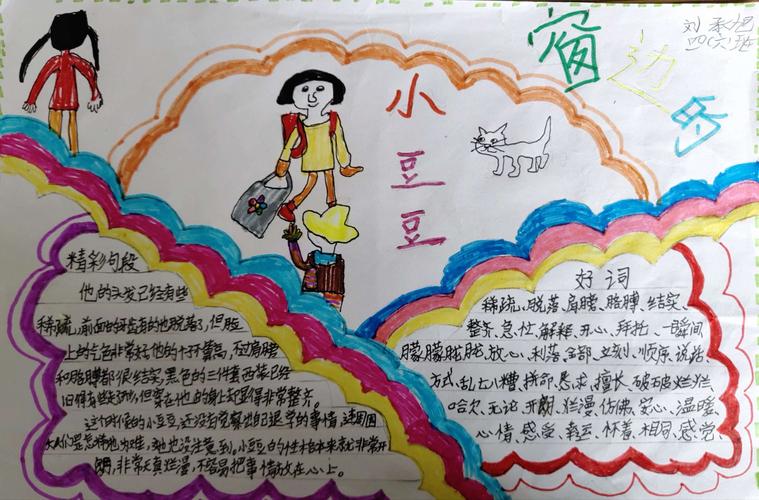 刘
四(六)班
窗
边
的
小
豆
豆
精彩句段
他的头发已经有些
稀疏,前面的牙齿有的也脱落了,但脸
上的气色非常好,他的个子不算高,不过肩膀
和胳膊都很结实,黑色的三件套西装已经
旧得有些走形,但穿在他的身上却显得非常整齐。
这个时候的小豆豆,还没有觉察出自己退学的事情,连周围
大人们是怎样地为难,她也没注意到。小豆豆的性格本来就非常开
朗,非常天真烂漫,不容易把事情放在心上。
好词
稀疏、脱落、肩膀、胳膊、结实、
整齐、急忙、解释、开心、拜托、一瞬间
朦朦胧胧、放心、利落、全部、立刻、顺序、说话、
方式、乱七八糟、拼命、恳求、擅长、破破烂烂、
哈欠、无论、开朗、烂漫、仿佛、安心、温暖、
心情、感受、幸运、怀着、相同、感觉、